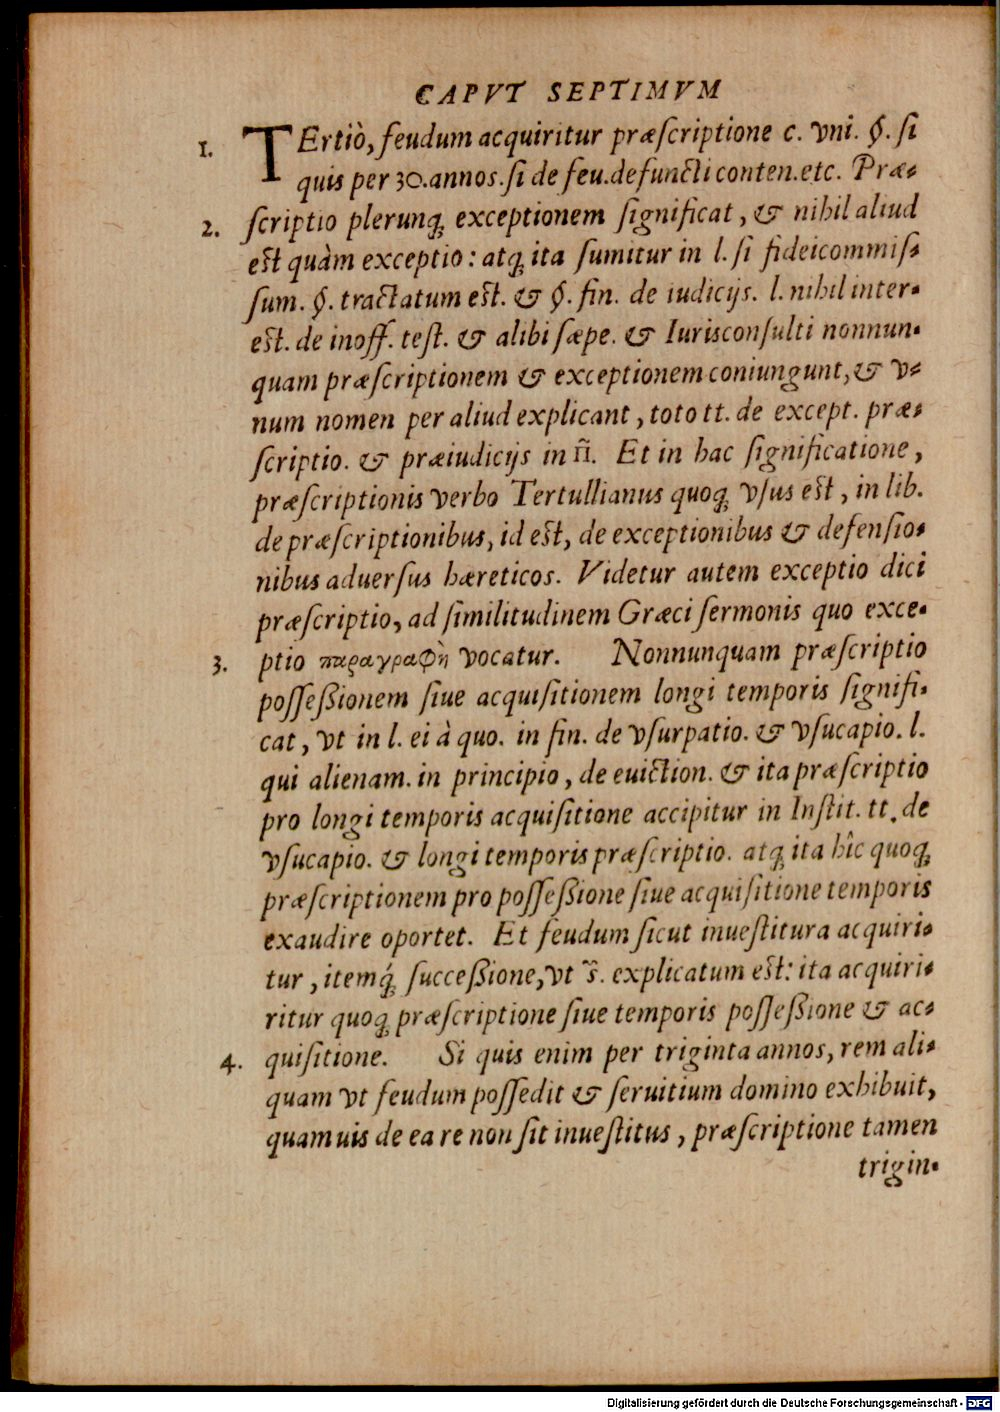 CAPVT SEPTIMVM
1. TErtiò, feudum acquiritur præſcriptione c. vni. §. ſi
quis per 30. annos. ſi de feu. defuncti conten. etc. Præ-
2. ſcriptio plerunq; exceptionem ſignificat, & nihil aliud
eſt quàm exceptio: atq; ita ſumitur in l. ſi fideicommiſ-
ſum. §. tractatum eſt. & §. fin. de iudicijs. l. nihil inter-
eſt. de inoff. teſt. & alibi ſæpe. & Iurisconſulti nonnun-
quam præſcriptionem & exceptionem coniungunt, & v-
num nomen per aliud explicant, toto tt. de except. præ-
ſcriptio. & præiudicijs in ff. Et in hac ſignificatione,
præſcriptionis verbo Tertullianus quoq; vſus eſt, in lib.
de præſcriptionibus, id eſt, de exceptionibus & defenſio-
nibus aduerſus hæreticos. Videtur autem exceptio dici
præſcriptio, ad ſimilitudinem Græci ſermonis quo exce-
3. ptio παραγραφὴ vocatur. Nonnunquam præſcriptio
poſſeßionem ſiue acquiſitionem longi temporis ſignifi-
cat, vt in l. ei à quo. in fin. de vſurpatio. & vſucapio. l.
qui alienam. in principio, de euiction. & ita præſcriptio
pro longi temporis acquiſitione accipitur in Inſtit. tt. de
vſucapio. & longi temporis præſcriptio. atq; ita hîc quoq;
præſcriptionem pro poſſeßione ſiue acquiſitione temporis
exaudire oportet. Et feudum ſicut inueſtitura acquiri-
tur, itemq́; ſucceßione, vt s̃. explicatum eſt: ita acquiri-
ritur quoq; præſcriptione ſiue temporis poſſeßione & ac-
4. quiſitione. Si quis enim per triginta annos, rem ali-
quam vt feudum poſſedit & ſeruitium domino exhibuit,
quamuis de ea re non ſit inueſtitus, præſcriptione tamen
trigin-
Digitalisierung gefördert durch die Deutsche Forschungsgemeinschaft - DFG